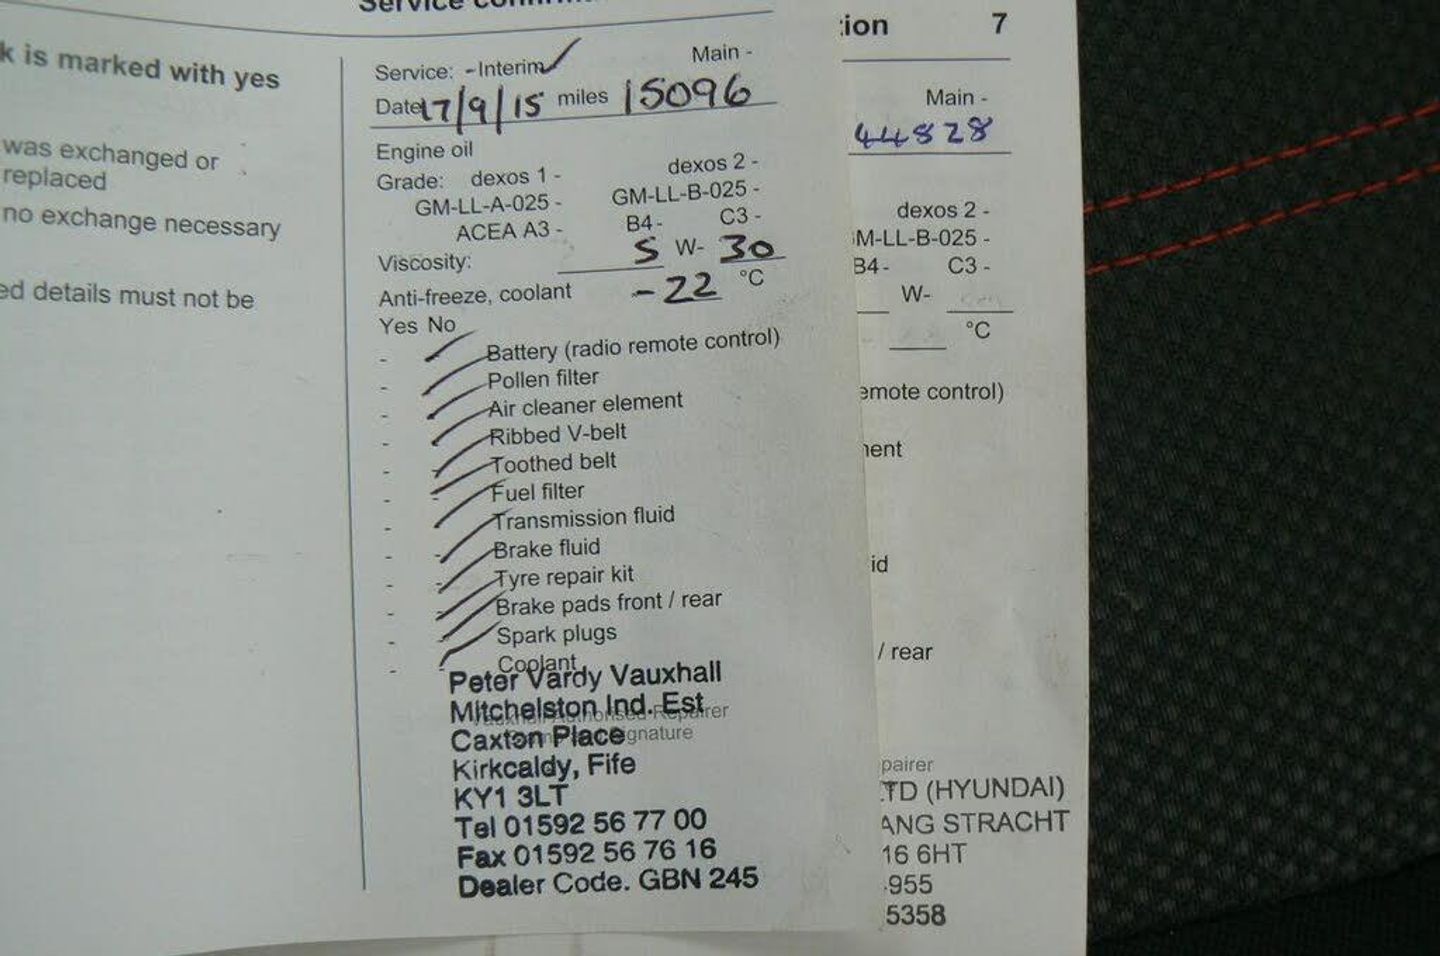 k is marked with yes
was exchanged or
replaced
no exchange necessary
ed details must not be
Service
Service: -Interim Main -
Date 17/9/15 miles 15096
Engine oil
Grade: dexos 1 - dexos 2 -
GM-LL-A-025 - GM-LL-B-025 -
ACEA A3 - B4 - C3 -
Viscosity: 5 W- 30
Anti-freeze, coolant -22 °C
Yes No
- Battery (radio remote control)
- Pollen filter
- Air cleaner element
- Ribbed V-belt
- Toothed belt
- Fuel filter
- Transmission fluid
- Brake fluid
- Tyre repair kit
- Brake pads front / rear
- Spark plugs
- Coolant
Peter Vardy Vauxhall
Mitchelston Ind. Est
Vauxhall Authorised Repairer
Caxton Place
Signature
Kirkcaldy, Fife
KY1 3LT
Tel 01592 56 77 00
Fax 01592 56 76 16
Dealer Code. GBN 245
tion 7
Main -
44828
dexos 2 -
M-LL-B-025 -
B4 - C3 -
W-
°C
emote control)
nent
id
/ rear
pairer
LTD (HYUNDAI)
ANG STRACHT
16 6HT
955
5358